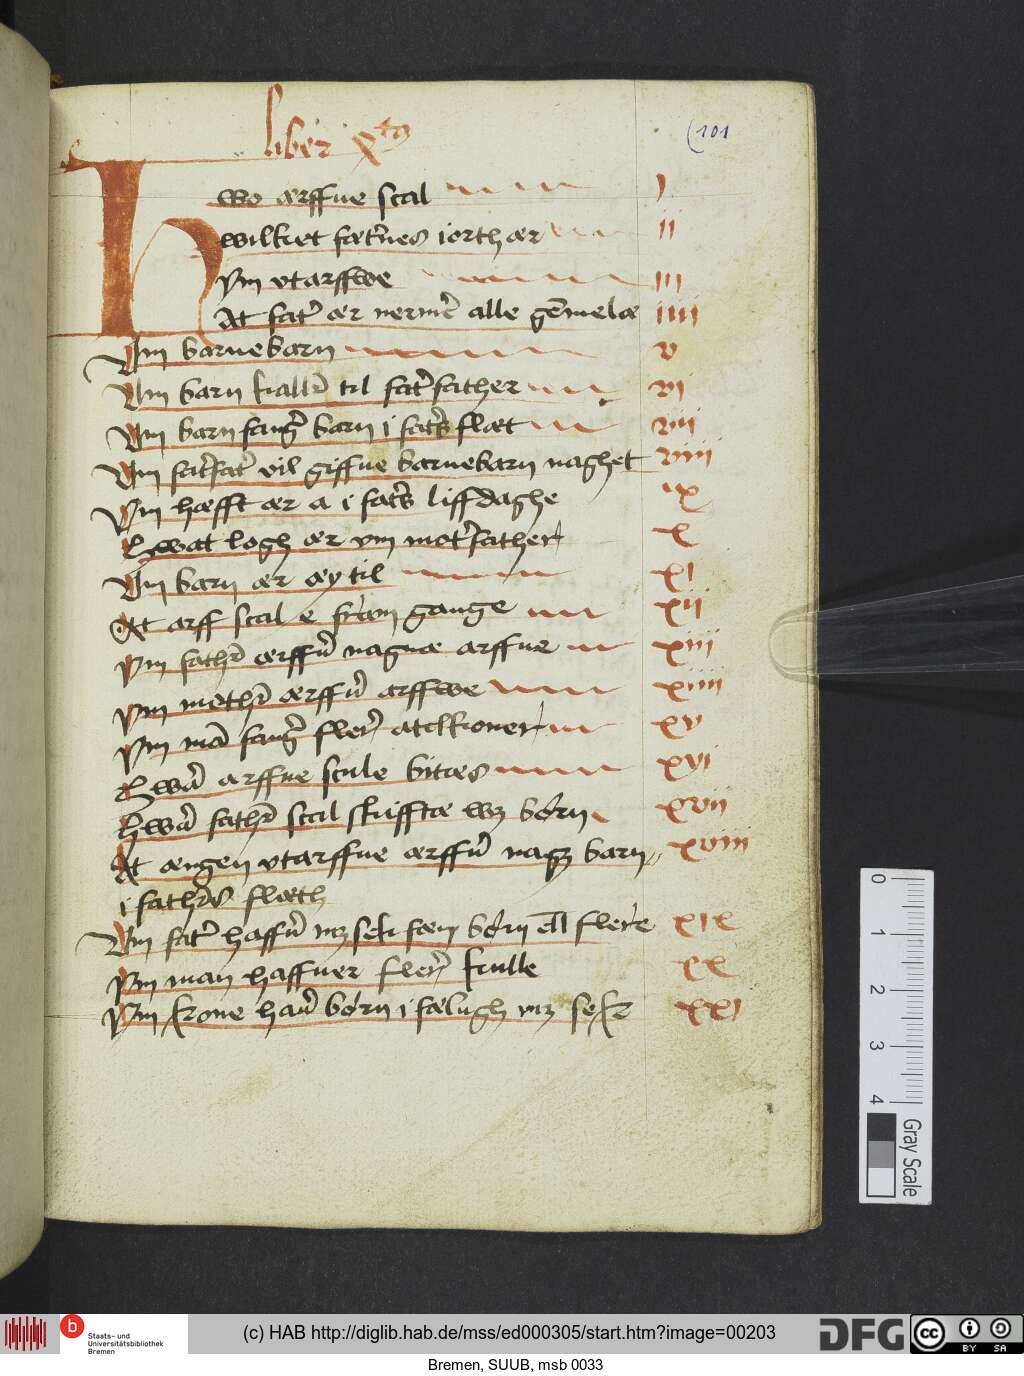 liber xtus
(101
Hwo ærffue scal j
hwilket fæt'nes iorth ær ii
Vm vtarffwe iii
At fat' ær nermer alle gemelæ iiii
Vm barnebarn v
Vm barn kaller til fat'father vi
Vm barn fanger barn i fat's flæt vii
Vm fat'fat' vil giffue barnebarn naghet viii
Vm hæfft ær a i fat's liffdaghe ix
Hwat logh ær vm mot'father x
Vm barn ær æy til xi
At arff scal e fram gange xii
Vm father ærffuer nagnæ arffue xiii
Vm mother ærffuer arffwe xiiii
Vm man fanger flere atelkoner xv
Hware arffue scule bitæs xvi
Hware father scal skifftæ wz børn xvii
At ængen vtarffue ærffuer nagz barn xviii
i fathers flæth
Vm fat' haffuer mz sek fæm børn ell flere xix
Vm man haffuer flere kulle xx
Vm kone hauer børn i fælugh mz sek xxi
0
1
2
3
4
Gray Scale
b
Staats- und
Universitätsbibliothek
Bremen
(c) HAB http://diglib.hab.de/mss/ed000305/start.htm?image=00203
DFG
cc
BY SA
Bremen, SUUB, msb 0033